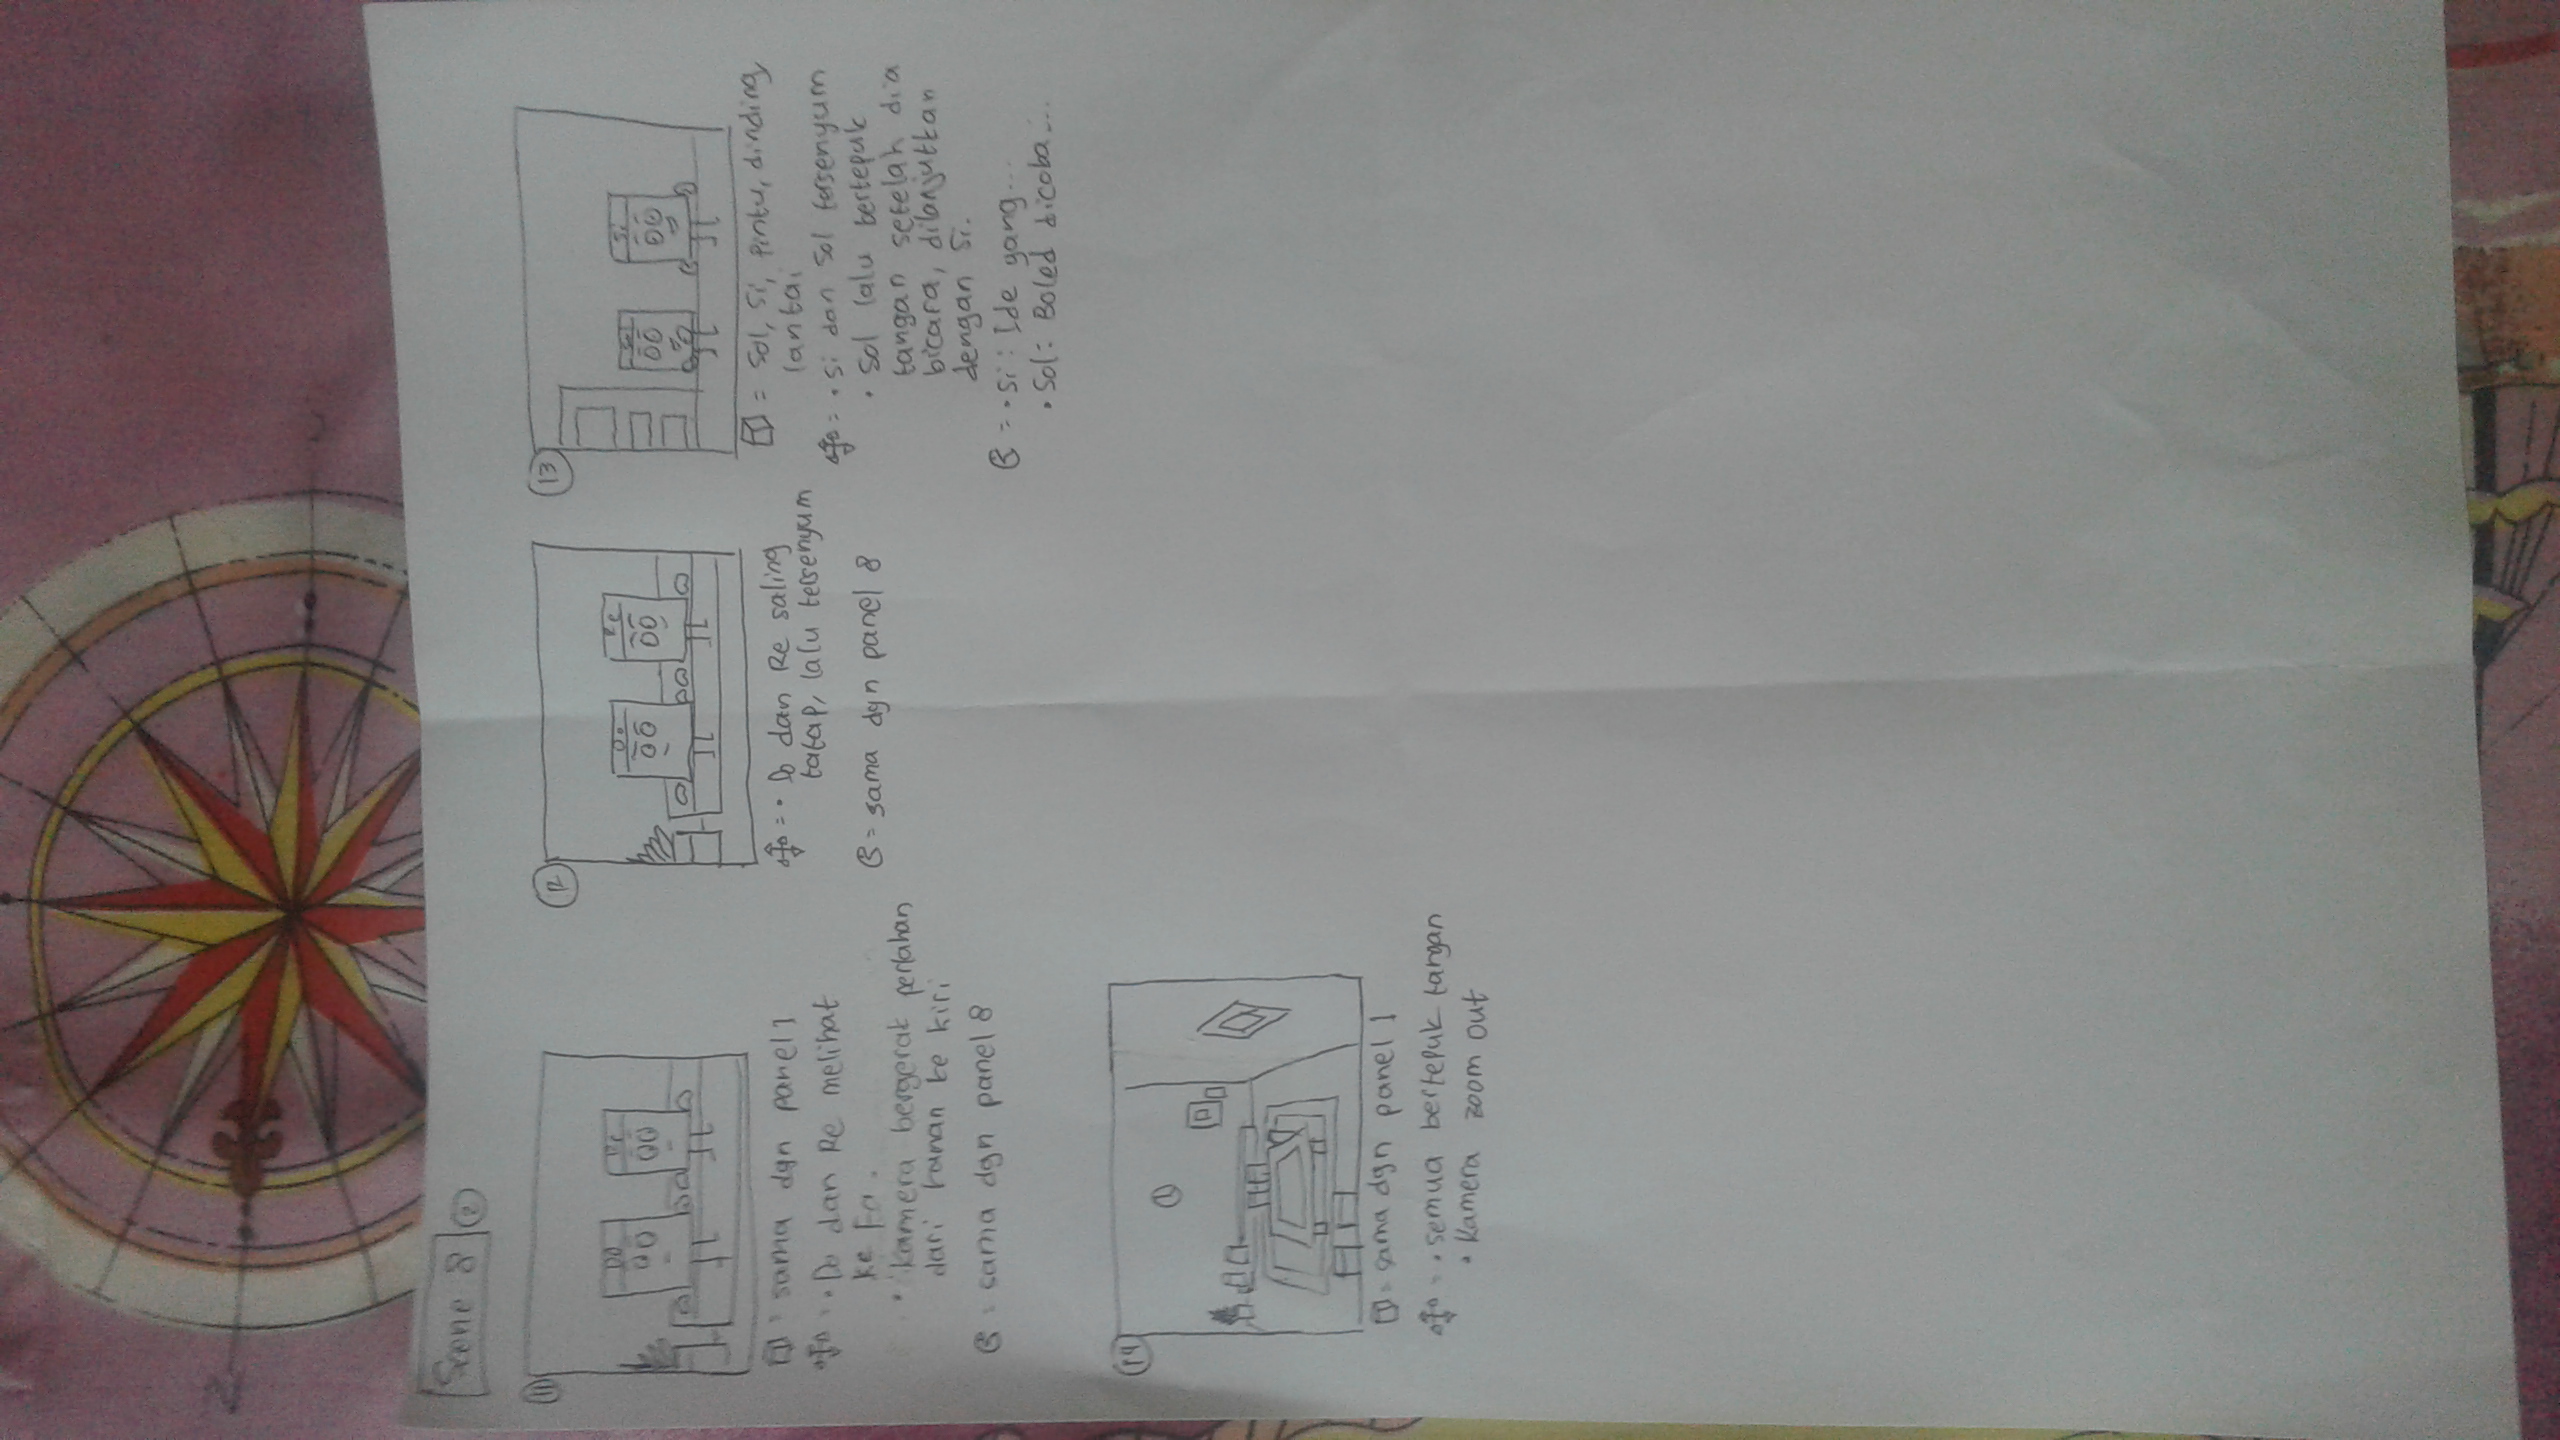 Scene 8 2
11
Do Re
= sama dgn panel 1
= • Do dan Re melihat
ke Fa.
• Kamera bergerak perlahan
dari kanan ke kiri
= sama dgn panel 8
12
Do Re
= • Do dan Re saling
tatap, lalu tersenyum
= sama dgn panel 8
13
Sol Si
= Sol, Si, Pintu, dinding,
lantai
= • Si dan Sol tersenyum
• Sol lalu bertepuk
tangan setelah dia
bicara, dilanjutkan
dengan Si.
= • Si: Ide yang...
• Sol: Boled dicoba...
14
= sama dgn panel 1
= • semua bertepuk tangan
• Kamera zoom out